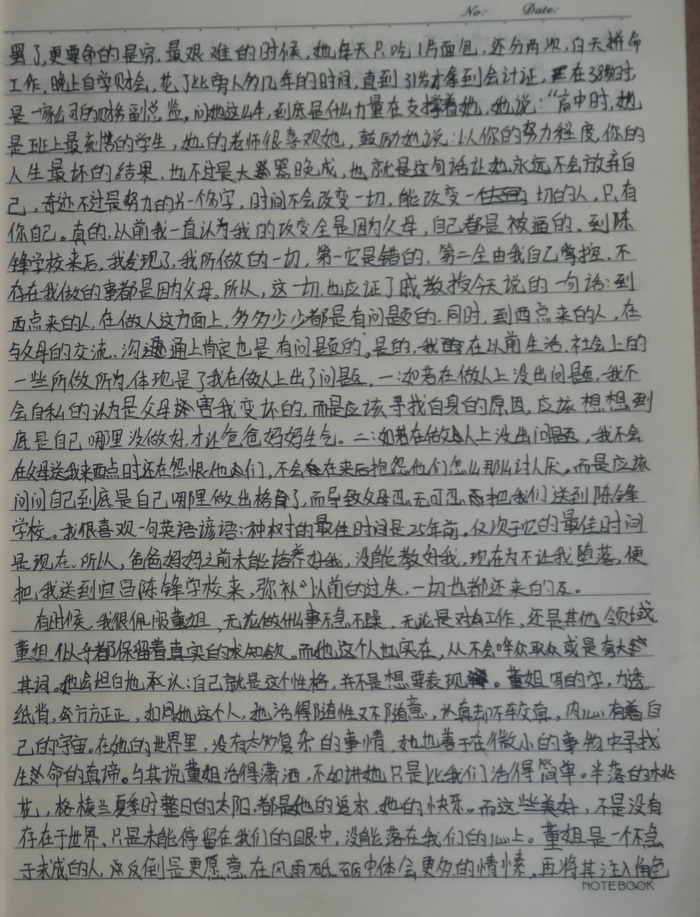 No:          Date:
罢了,更要命的是穷,最艰难的时候,她每天只吃1片面包,还分两次,白天拼命
工作,晚上自学财会,花了比旁人多几年的时间,直到31岁才拿到会计证,在38岁时,
是一家公司的财务副总监,问她这么年,到底是什么力量在支撑着她,她说:“高中时,她
是班上最刻苦的学生,她的老师很喜观她,鼓励她说:以你的努力程度,你的
人生最坏的结果,也不过是大器晚成,也就是这句话让她永远不会放弃自
己,奇迹不过是努力的另一个名字,时间不会改变一切,能改变一切的人,只有
你自己。真的,以前我一直认为我的改变全是因为父母,自己都是被逼的,到陈
锋学校来后,我发现了,我所做的一切,第一它是错的,第二全由我自己掌控,不
存在我做的事都是因为父母。所以,这一切也应证了戚教授今天说的一句话:到
西点来的人,在做人这方面上,多多少少都是有问题的,同时,到西点来的人,在
与父母的交流,沟通上肯定也是有问题的,是的,我在以前生活,社会上的
一些所做所为,体现是了我在做人上出了问题,一:如若在做人上没出问题,我不
会自私的认为是父母害我变坏的,而是应该寻找自身的原因,应该想想到
底是自己哪里没做好,才让爸爸妈妈生气。二:如若在做人上没出问题,我不会
在父母送我来西点时还在怨恨他们,不会在来后抱怨他们怎么那么讨人厌。而是应该
问问自己到底是自己哪里做出格了,而导致父母忍无可忍而把我们送到陈锋
学校。我很喜观一句英语谚语:种树的最佳时间是25年前,仅次于它的最佳时间
是现在。所以,爸爸妈妈之前未能培养好我,没能教好我,现在为不让我堕落,便
把我送到宜昌陈锋学校来,弥补以前的过失,一切也都还来的及。
有时候,我很佩服董姐,无论做什么事不急不躁,无论是对工作,还是其他领域
董姐似乎都保留着真实的求知欲。而她这个人也实在,从不会哗众取众或是夸大
其词。她会坦白地承认:自己就是这个性格,并不是想要表现。董姐写的字,力透
纸背,方方正正,如同她这个人,她活得随性又不随意,认真却不较真,内心有着自
己的宇宙。在她的世界里,没有太多复杂的事情,她也善于在微小的事物中寻找
生命的真谛。与其说董姐活得潇洒,不如讲她只是比我们活得简单。半落的桃
花,格棱兰夏季时整日的太阳,都是她的追求,她的快乐。而这些美好,不是没有
存在于世界,只是未能停留在我们的眼中,没能落在我们的心上。董姐是一个不急
于求成的人,反倒是更愿意在风雨砥砺中体会更多的情愫,再将其注入角色
NOTEBOOK